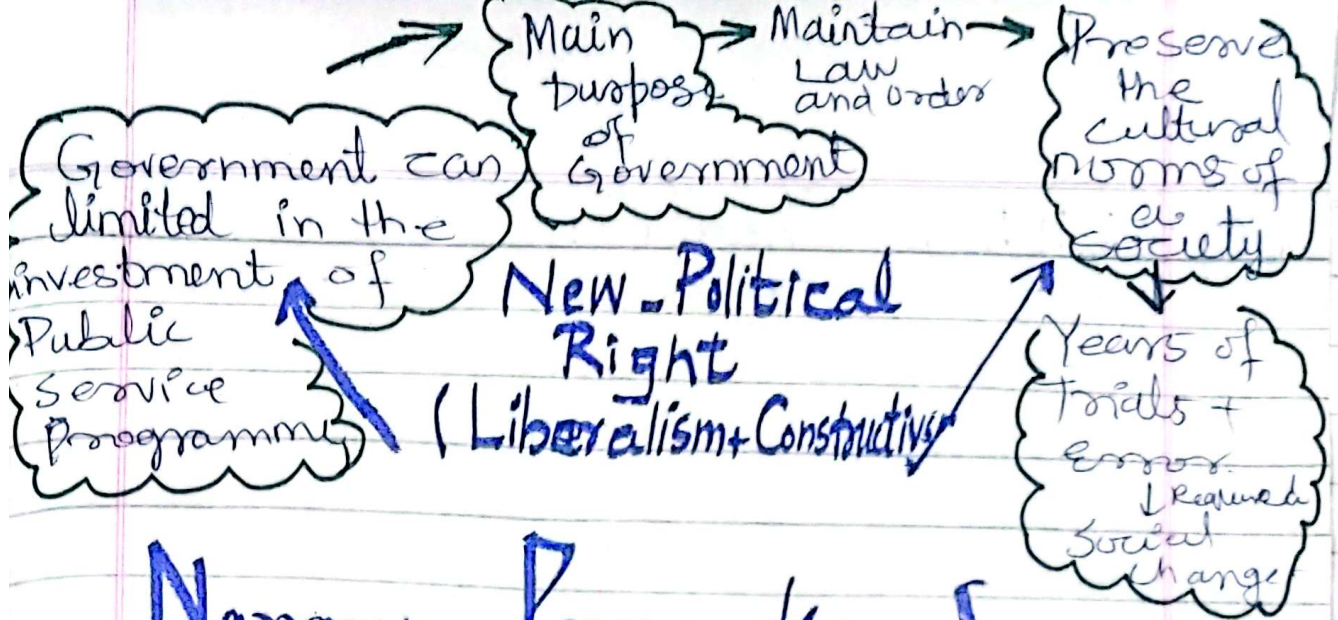 Main
purpose
of
Government
Maintain
Law
and order
Preserve
the
cultural
norms of
a
society
Government can
limited in the
investment of
Public
Service
Programme
New-Political
Right
(Liberalism+Constructivs
Years of
Trials +
Error
↓ Required
Social
change